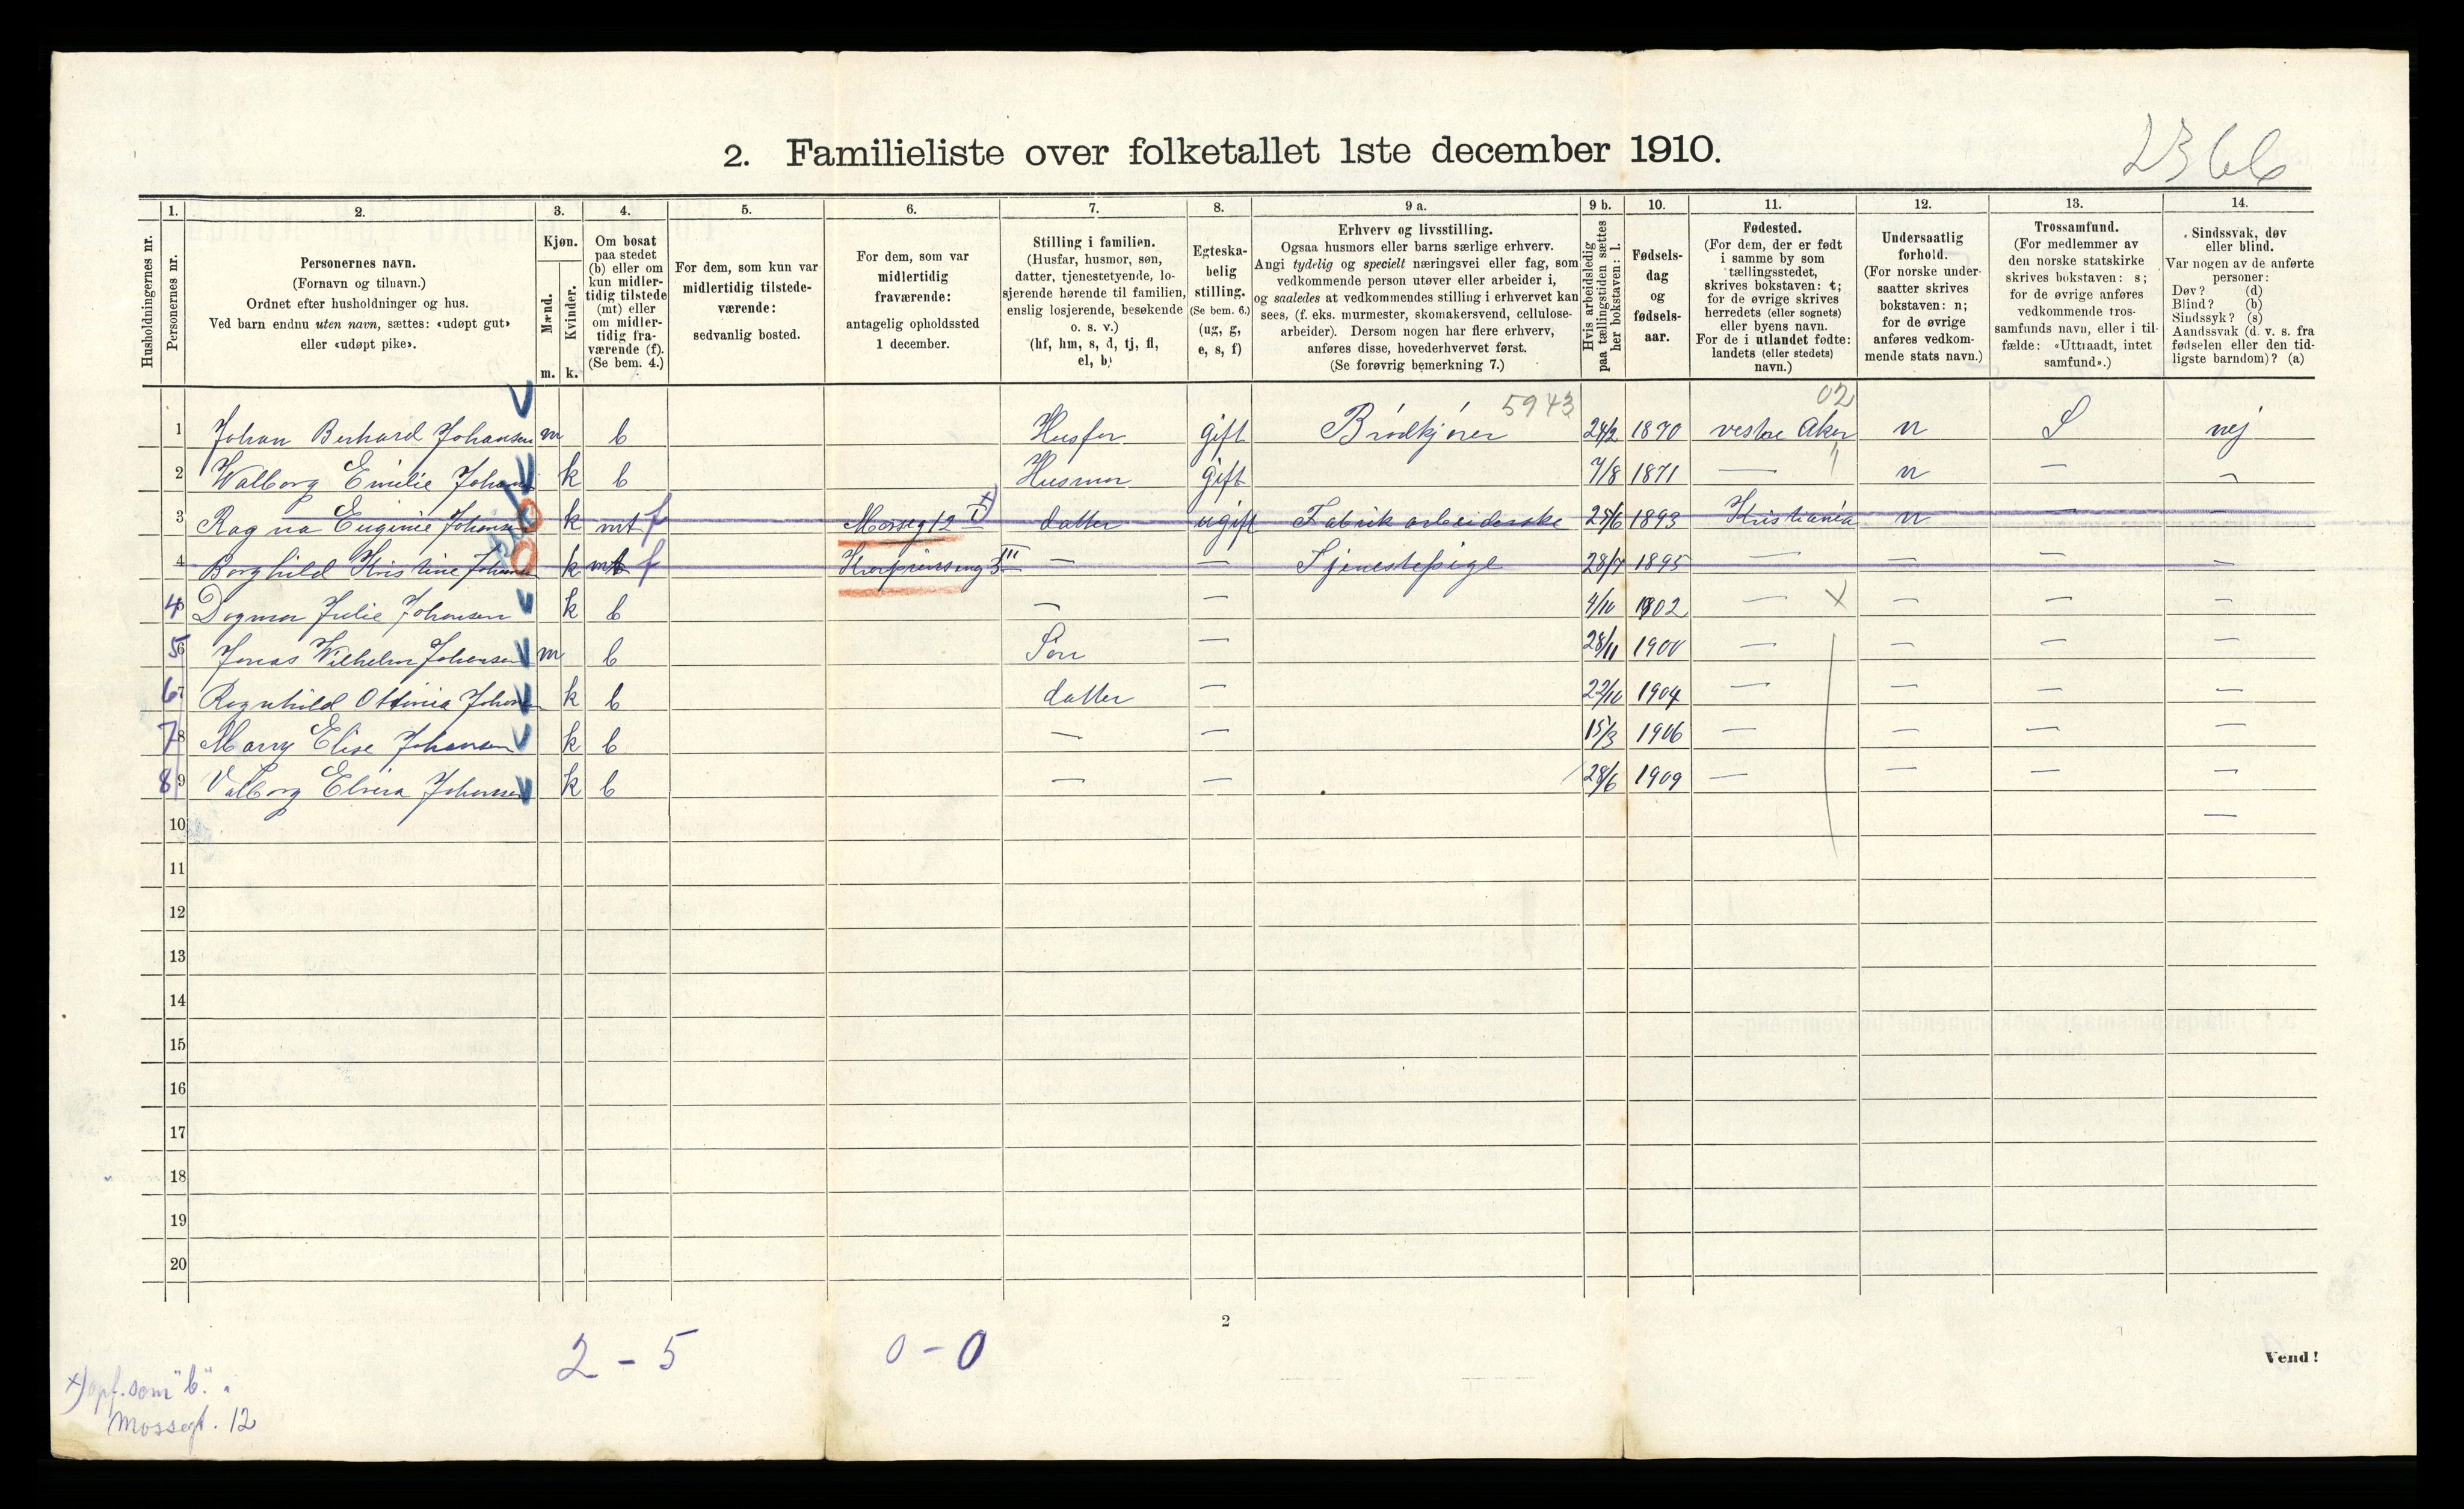 2366
2. Familieliste over folketallet 1ste december 1910.
1. 2. 3. 4. 5. 6. 7. 8. 9 a. 9 b. 10. 11. 12. 13. 14.
Husholdningernes nr.
Personernes nr.
Personernes navn.
(Fornavn og tilnavn.)
Ordnet efter husholdninger og hus.
Ved barn endnu uten navn, sættes: «udøpt gut»
eller «udøpt pike».
Kjøn.
Mænd.
Kvinder.
m. k.
Om bosat
paa stedet
(b) eller om
kun midler-
tidig tilstede
(mt) eller
om midler-
tidig fra-
værende (f).
(Se bem. 4.)
For dem, som kun var
midlertidig tilstede-
værende:
sedvanlig bosted.
For dem, som var
midlertidig
fraværende:
antagelig opholdssted
1 december.
Stilling i familien.
(Husfar, husmor, søn,
datter, tjenestetyende, lo-
sjerende hørende til familien,
enslig losjerende, besøkende
o. s. v.)
(hf, hm, s, d, tj, fl,
el, b)
Egteska-
belig
stilling.
(Se bem. 6.)
(ug, g,
e, s, f)
Erhverv og livsstilling.
Ogsaa husmors eller barns særlige erhverv.
Angi tydelig og specielt næringsvei eller fag, som
vedkommende person utøver eller arbeider i,
og saaledes at vedkommendes stilling i erhvervet kan
sees, (f. eks. murmester, skomakersvend, cellulose-
arbeider). Dersom nogen har flere erhverv,
anføres disse, hovederhvervet først.
(Se forøvrig bemerkning 7.)
Hvis arbeidsledig
paa tællingstiden sættes
her bokstaven: l.
Fødsels-
dag
og
fødsels-
aar.
Fødested.
(For dem, der er født
i samme by som
tællingsstedet,
skrives bokstaven: t;
for de øvrige skrives
herredets (eller sognets)
eller byens navn.
For de i utlandet fødte:
landets (eller stedets)
navn.)
Undersaatlig
forhold.
(For norske under-
saatter skrives
bokstaven: n;
for de øvrige
anføres vedkom-
mende stats navn.)
Trossamfund.
(For medlemmer av
den norske statskirke
skrives bokstaven: s;
for de øvrige anføres
vedkommende tros-
samfunds navn, eller i til-
fælde: «Uttraadt, intet
samfund».)
Sindssvak, døv
eller blind.
Var nogen av de anførte
personer:
Døv? (d)
Blind? (b)
Sindssyk? (s)
Aandssvak (d. v. s. fra
fødselen eller den tid-
ligste barndom)? (a)
5943 02
1 Johan Berhard Johansen m b Husfar gift Brødkjører 24/2 1870 vestre Aker n S nej
2 Walborg Emilie Johans k b Husmor gift 7/8 1871 — " n — —
3 Ragna Euginie Johansen k mt f Mosseg 12 I x) datter ugift Fabrik arbeiderske 25/6 1893 Kristiania n — —
4 Borghild Kristine Johansen k mt f 3 III — — Tjenestepige 28/7 1895 — — — —
4 Dagmar Julie Johansen k b — — 4/10 1902 — x — — —
5 6 Jonas Wilhelm Johansen m b Søn — 28/11 1900 — — — —
6 7 Ragnhild Ottinia Johansen k b datter — 22/10 1904 — — — —
7 8 Marry Elise Johansen k b — — 15/3 1906 — — — —
8 9 Valborg Elvira Johansen k b — — 28/6 1909 — — — —
10 —
11
12
13
14
15
16
17
18
19
20
2
2 - 5 0 - 0
Vend!
x) opf. som "b."
Mossegt. 12